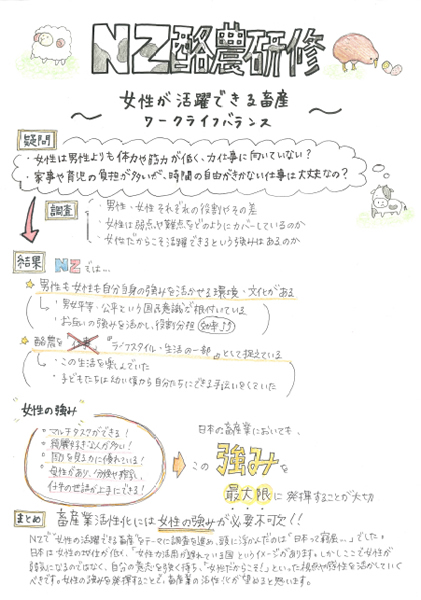 NZ酪農研修
女性が活躍できる畜産
～ワークライフバランス～
疑問
・女性は男性よりも体力や筋力が低く、力仕事に向いていない？
・家事や育児の負担が多いが、時間の自由がきかない仕事は大丈夫なの？
調査
・男性・女性それぞれの役割やその差
・女性は弱点や難点をどのようにカバーしているのか
・女性だからこそ活躍できるという強みはあるのか
結果 NZでは…
☆男性も女性も自分自身の強みを活かせる環境・文化がある
・男女平等・公平という国民意識が根付いている
・お互いの強みを活かし、役割分担
☆酪農を"仕事" "ライフスタイル・生活の一部"として捉えている
・この生活を楽しんでいた
・子どもたちは幼い頃から自分たちにできる手伝いをしていた
女性の強み
・マルチタスクができる！
・綺麗好きな人が多い！
・周りを見る力に優れている！
・母性があり、分娩や哺乳、
仔牛の世話が上手にできる！
日本の畜産業においても、
この強みを
最大限に発揮することが大切
まとめ 畜産業活性化には女性の強みが必要不可欠！！
NZで"女性の活躍できる畜産"をテーマに調査を進め、頭に浮かんだのは「日本って窮屈…」でした。
日本は女性の地位が低く、「女性が活用が遅れている国」というイメージがあります。しかしここで女性が
弱気になるのではなく、自分の意志を強く持ち、「女性だからこそ！」といった視点や感性を活かしていく
べきです。女性の強みを発揮することで、畜産業の活性化が望めると思います。